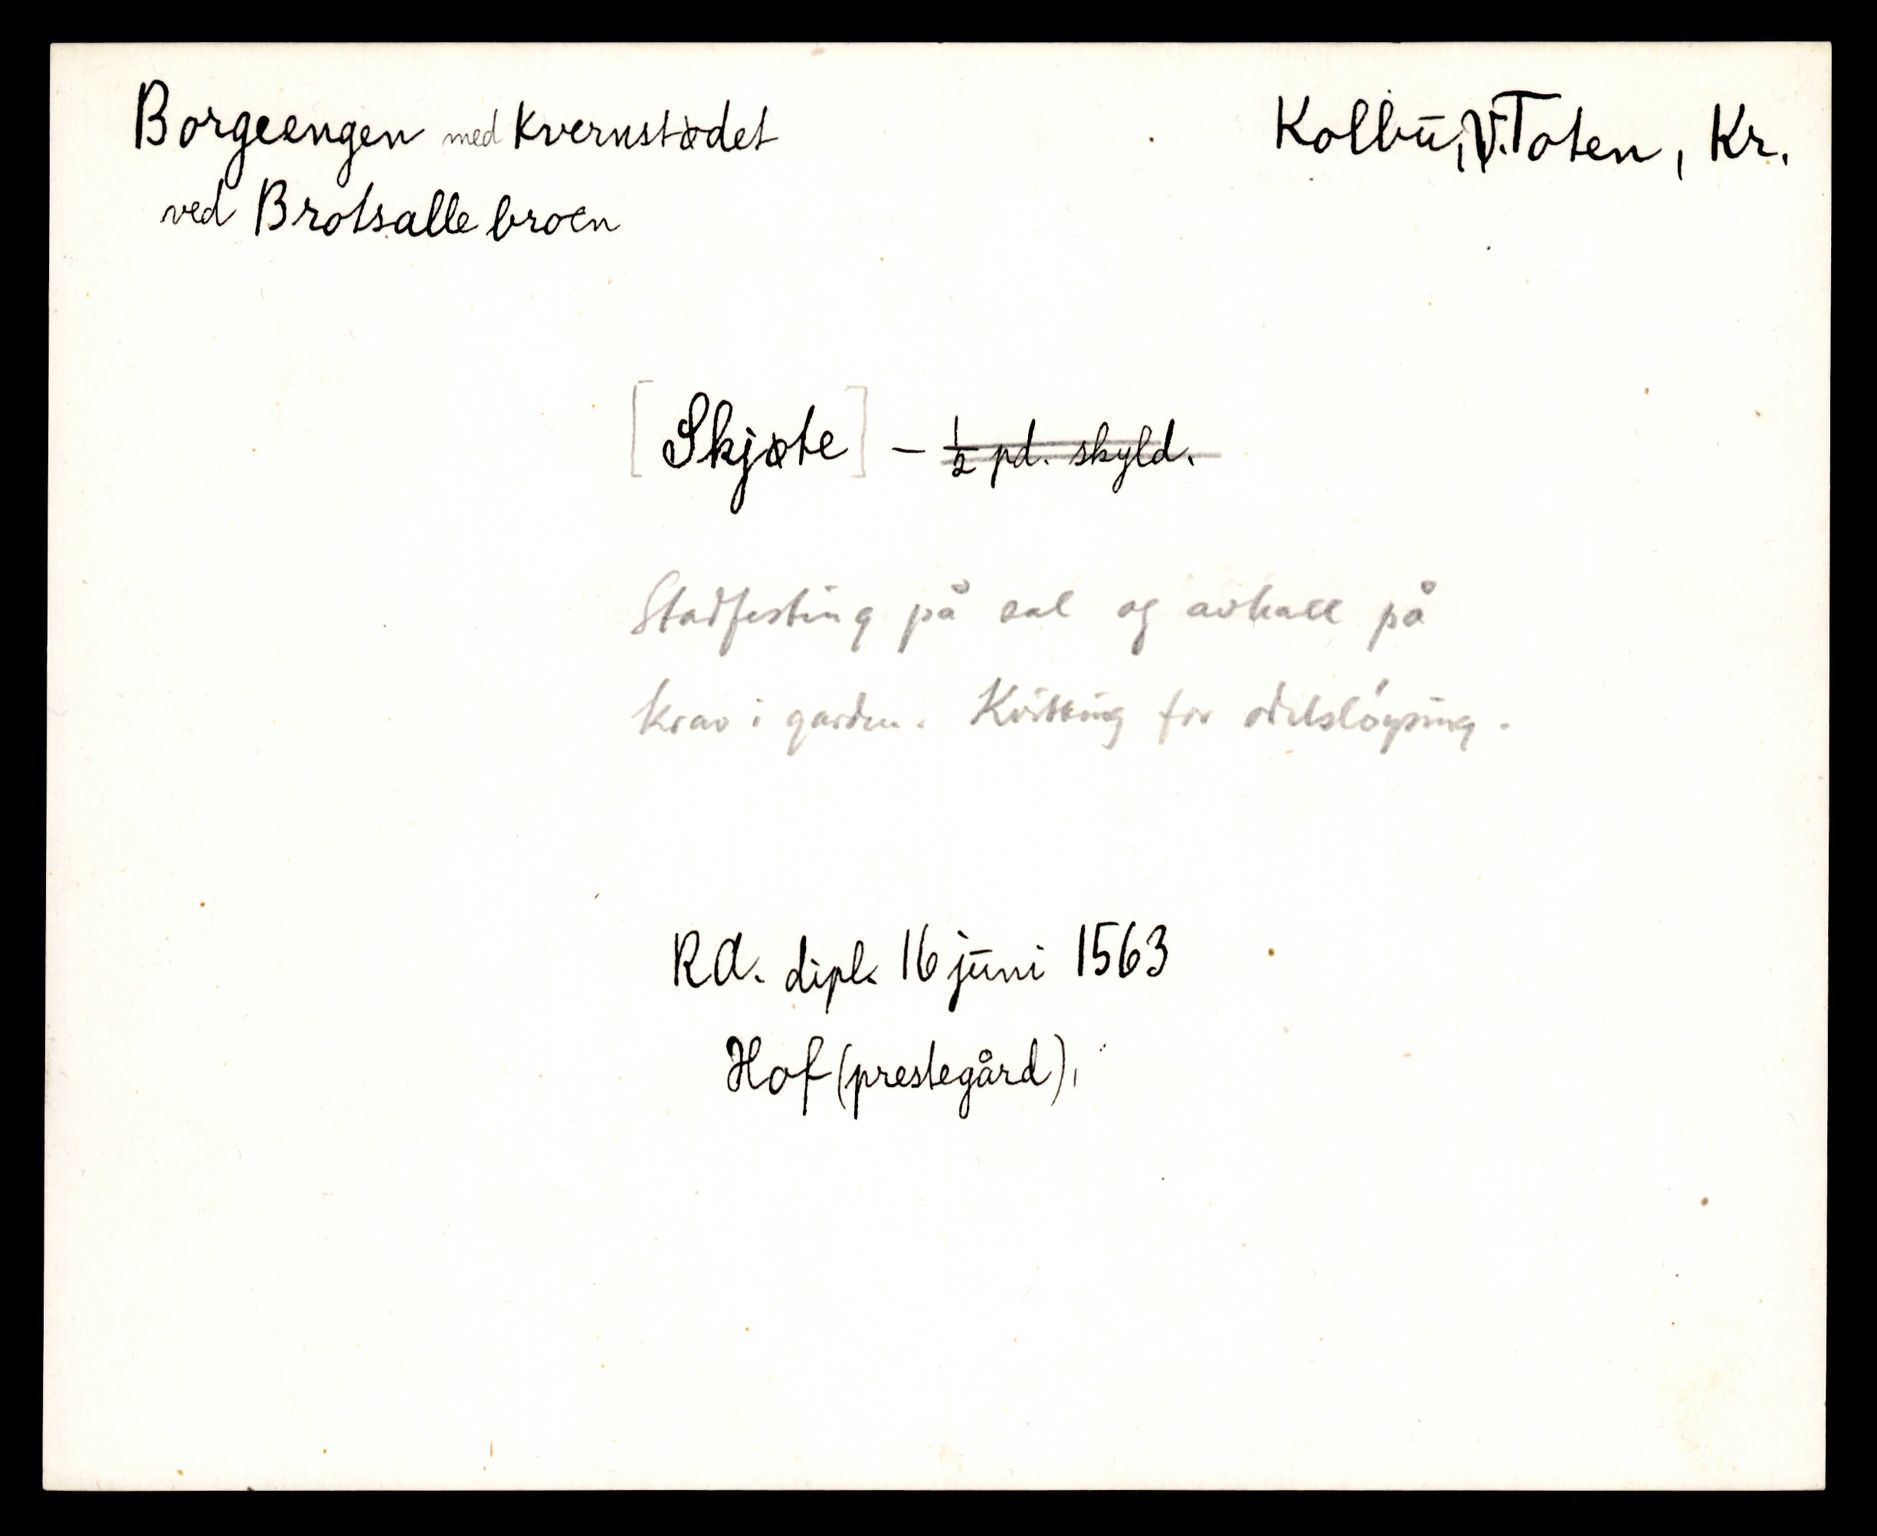 Borgeengen med Kvernstødet
ved Brotsalle broen
Kolbu, V. Toten, Kr.
[Skjøte] – ½ pd. skyld.
Stadfesting på sal og avkall på
krav i garden. Kvitting for odelsløysing.
RA. dipl. 16 juni 1563
Hof (prestegård),